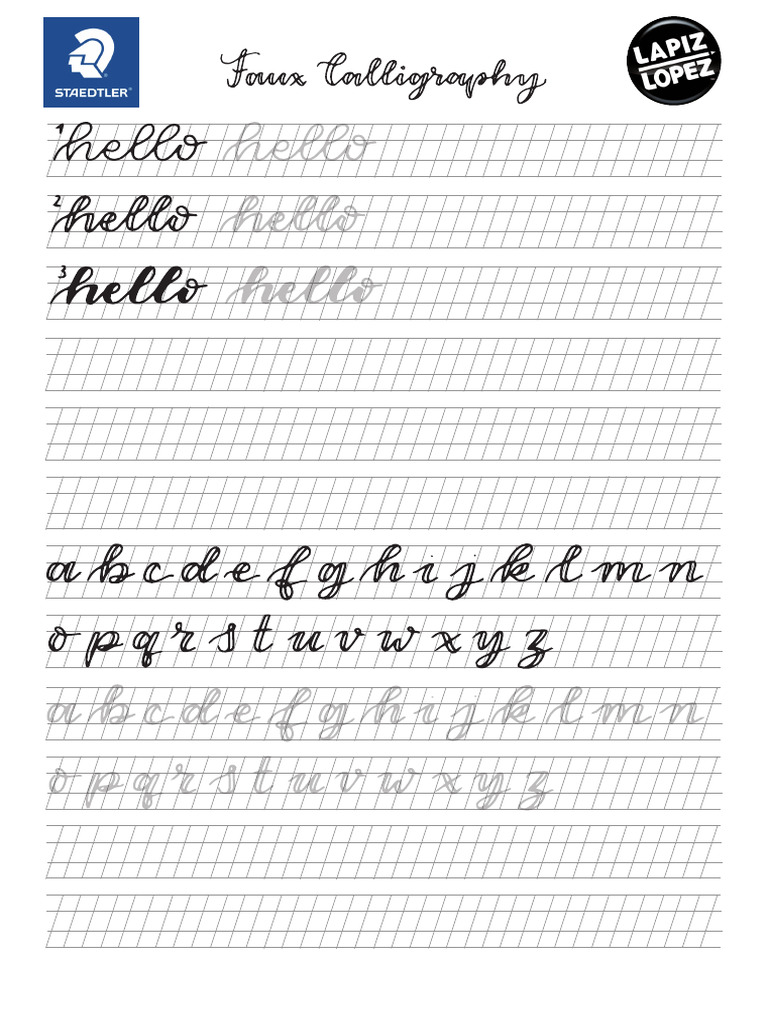 STAEDTLER
Faux Calligraphy
LAPIZ
LOPEZ
1 hello hello
2 hello hello
3 hello hello
a b c d e f g h i j k l m n
o p q r s t u v w x y z
a b c d e f g h i j k l m n
o p q r s t u v w x y z